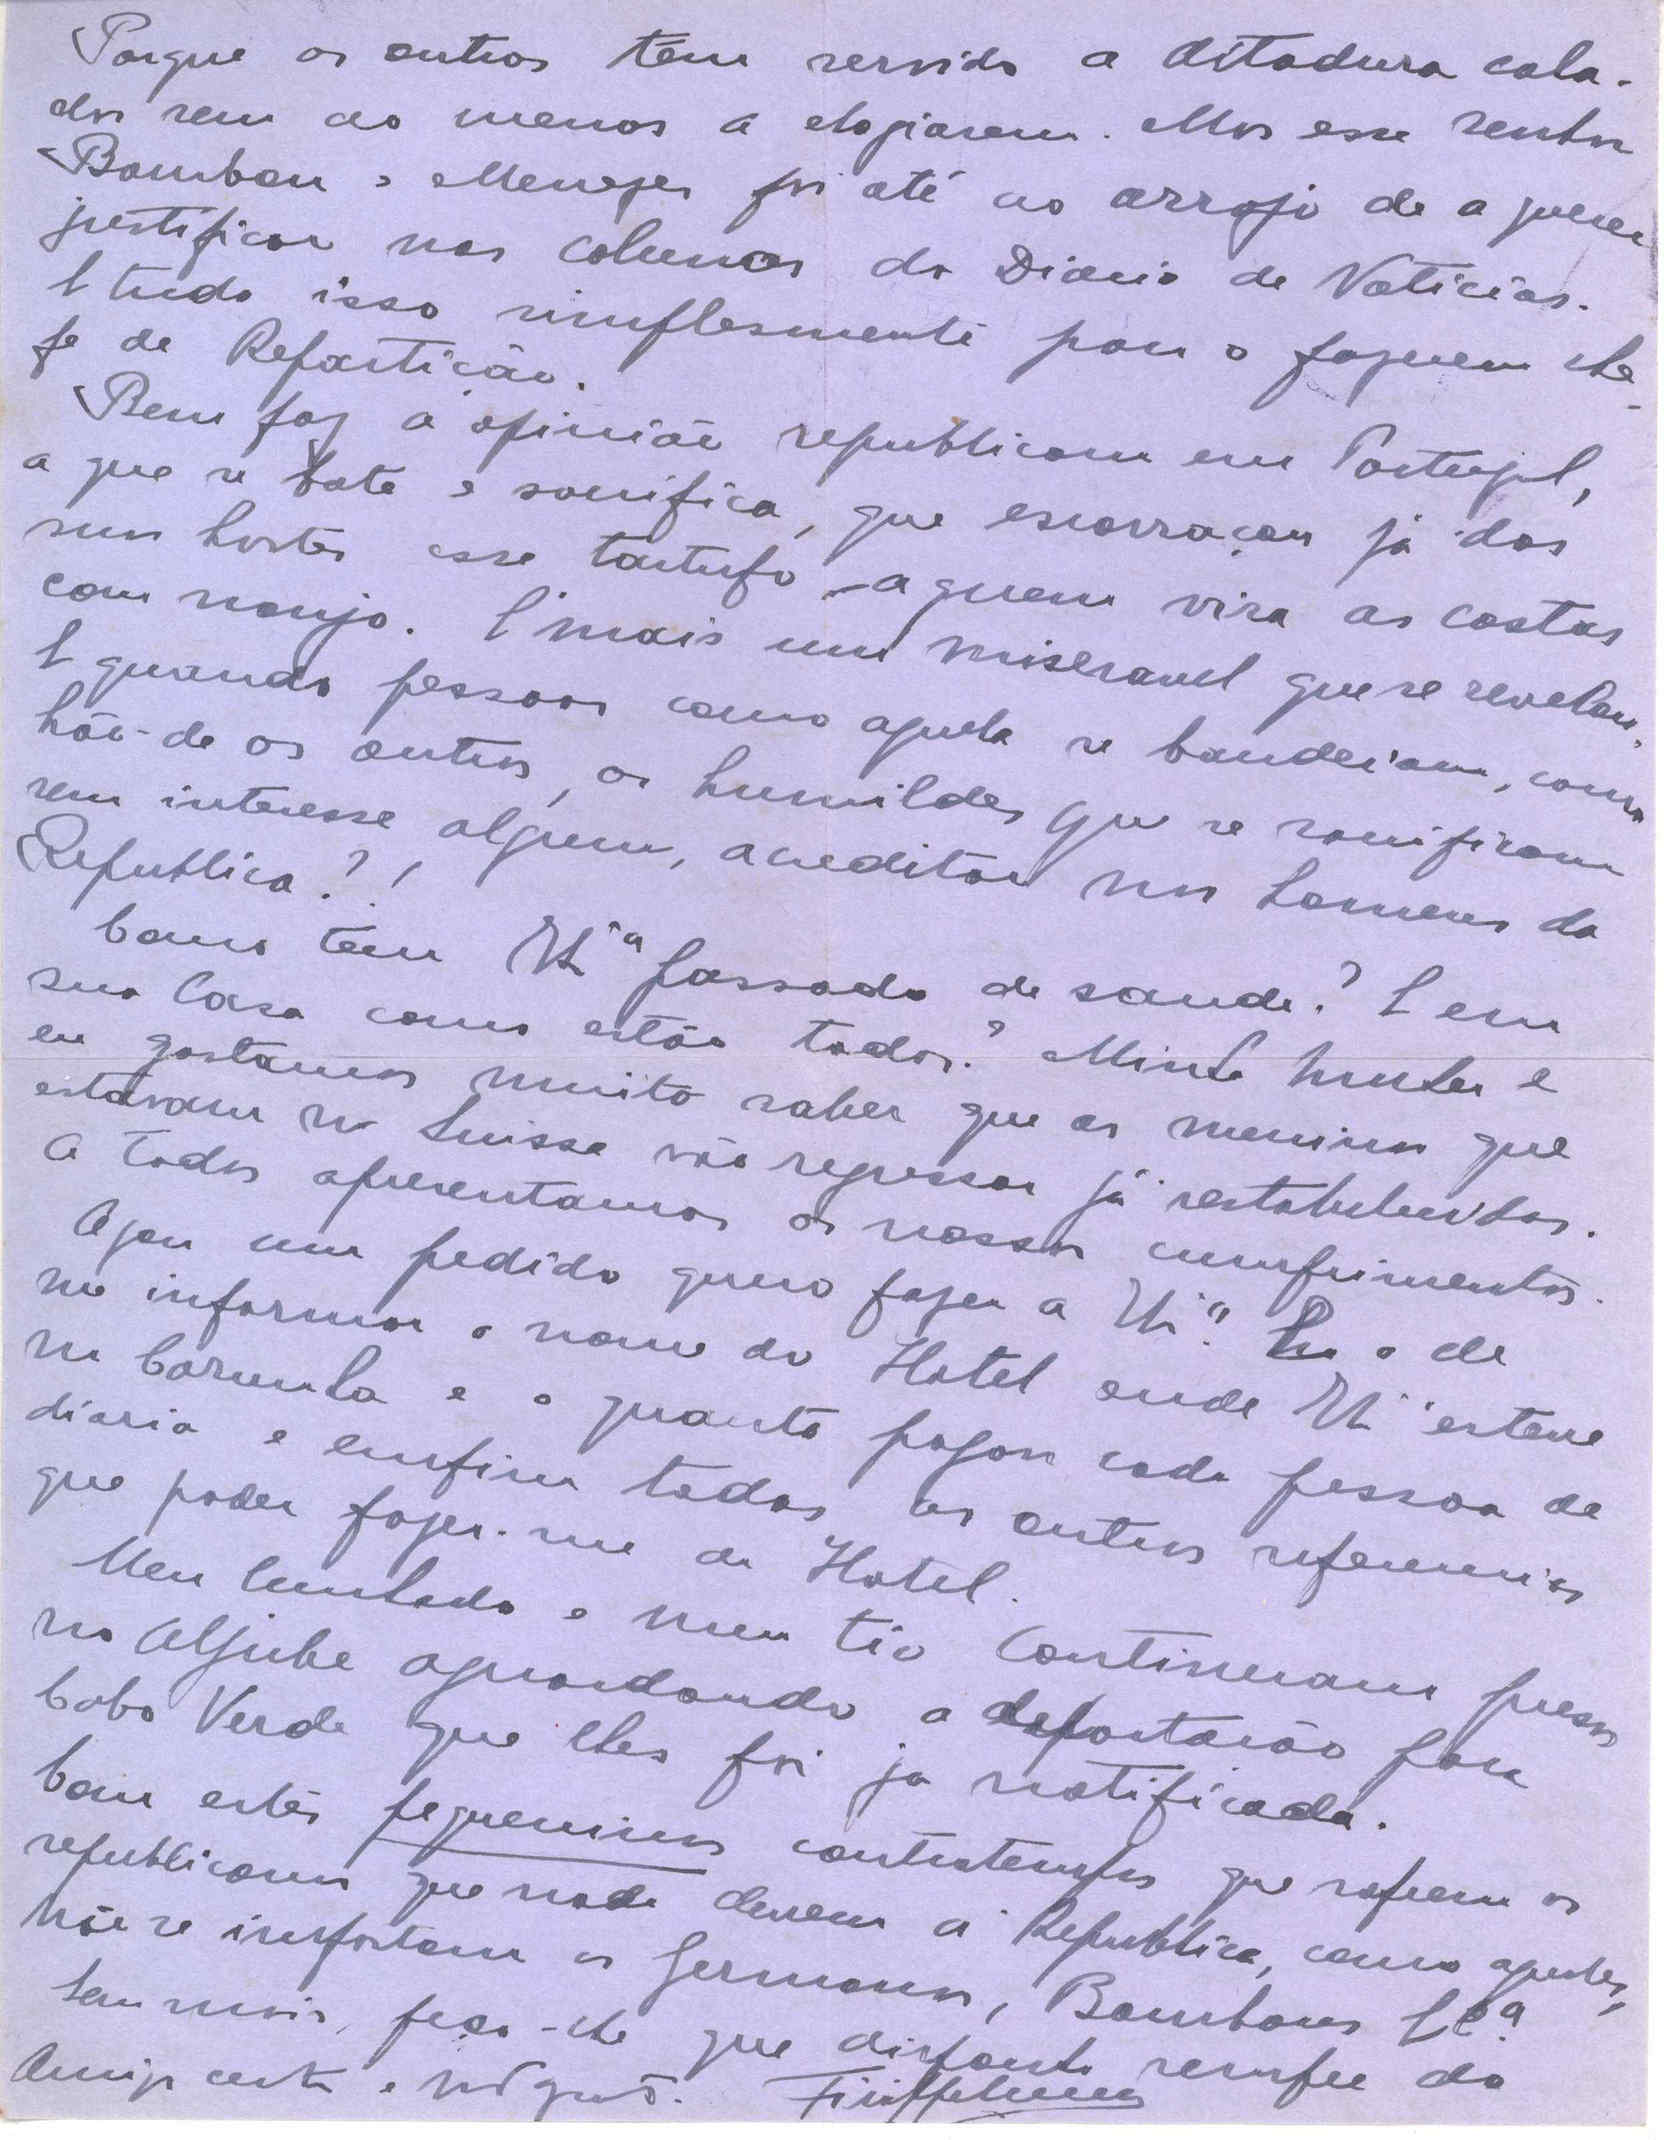 Porque os outros têm servido a ditadura cala-
dos sem ao menos a elogiarem. Mas esse senhor
Bombon e Menezes foi até ao arrojo de a querer
justificar nas colunas do Diario de Noticias.
E tudo isso simplesmente para o fazerem che-
fe de Repartição.
Bem faz a opinião republicana em Portugal,
a que se bate e sacrifica, que escorraçou já das
suas hostes esse tartufo a quem vira as costas
com nonjo. E' mais um miseravel que se revelou.
E quando pessoas como aquela se bandeiam, como
hão-de os outros, os humildes que se sacrificam
sem interesse algum, acreditar nos homens da
Republica?!
Como tem V. Exª passado de saude? E em
sua Casa como estão todos? Minha mulher e
eu gostamos muito saber que os meninos que
estavam na Suissa vão regressar já restabelecidos.
A todos apresentamos os nossos cumprimentos.
Agora um pedido quero fazer a V. Exª. o de
me informar o nome do Hotel onde V. Exª esteve
na Corunha e o quanto pagou cada pessoa de
diaria e emfim todas as outras referencias
que poder fazer-me do Hotel.
Meu Cunhado e meu tio Continuam presos
no Aljube aguardando a deportação para
Cabo Verde que lhes foi ja notificada.
Com estes pequeninos contratempos que sofrem os
republicanos que nada devem á Republica, como aqueles,
não se importam os Germanos, Bombons Eª.
Sem mais, peço-lhe que disponha sempre do
Amigo certo e mtº gratº.